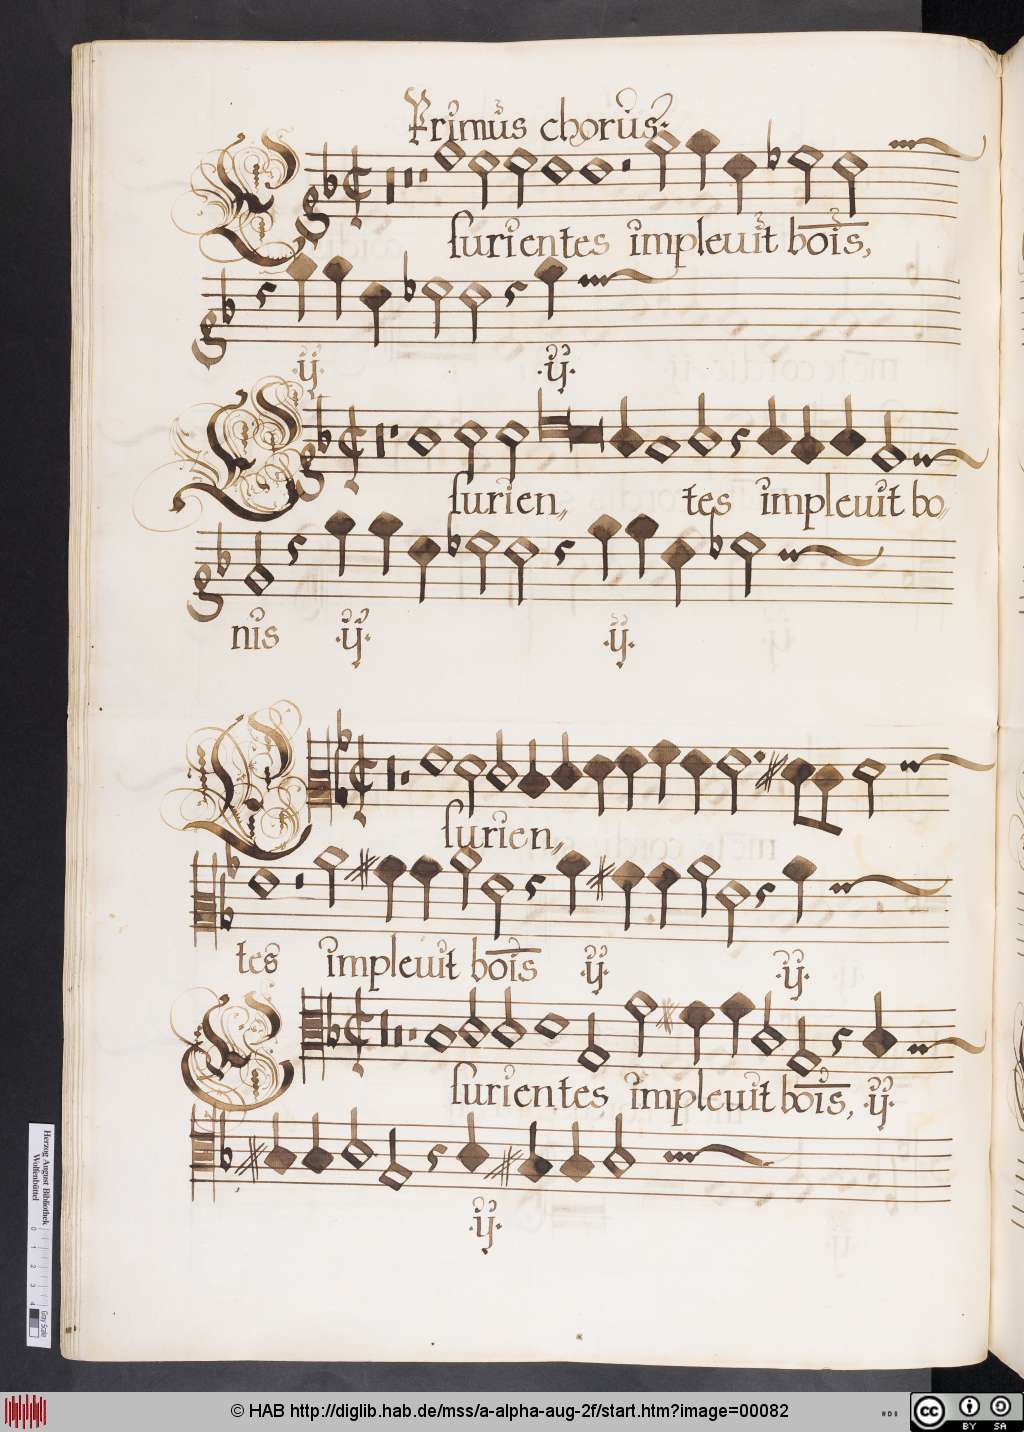 Primus chorus.
Esurientes impleuit bo̅is,
.ij. .ij.
Esurien, tes impleuit bo,
nis .ij. .ij.
Esurien,
tes impleuit bo̅is .ij. .ij.
Esurientes impleuit bo̅is, .ij.
.ij.
Herzog August Bibliothek
Wolfenbüttel
0 1 2 3 4
Gray Scale
© HAB http://diglib.hab.de/mss/a-alpha-aug-2f/start.htm?image=00082
cc BY SA